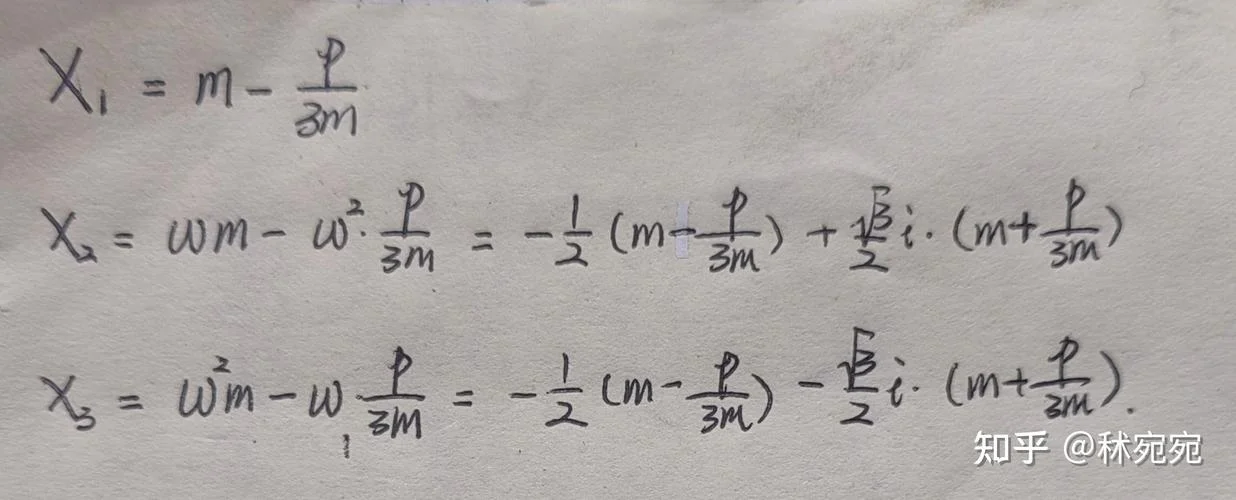 X₁ = m - p/3m
X₂ = ωm - ω²· p/3m = -1/2 (m - p/3m) + √3/2 i· (m + p/3m)
X₃ = ω²m - ω· p/3m = -1/2 (m - p/3m) - √3/2 i· (m + p/3m).
知乎 @秫宛宛